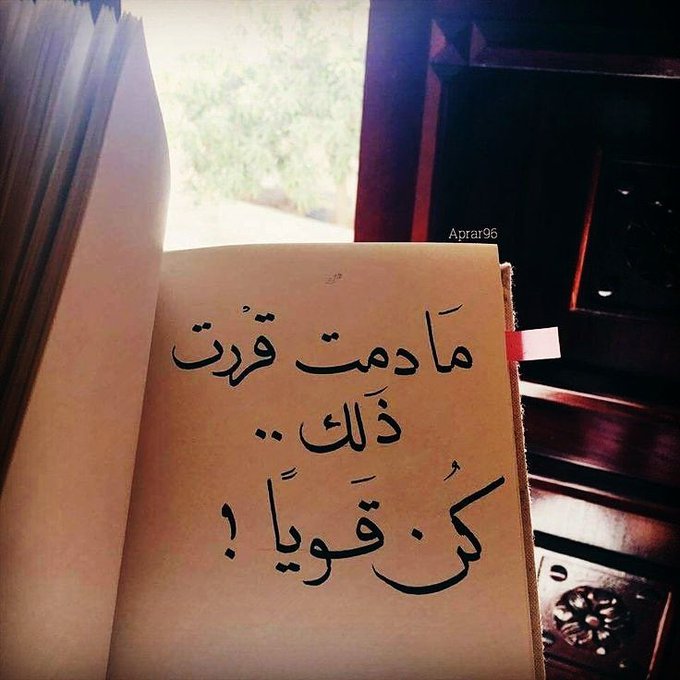 Aprar96
مَا دمت قرْرت
ذَلك ..
كُن قَوياً !